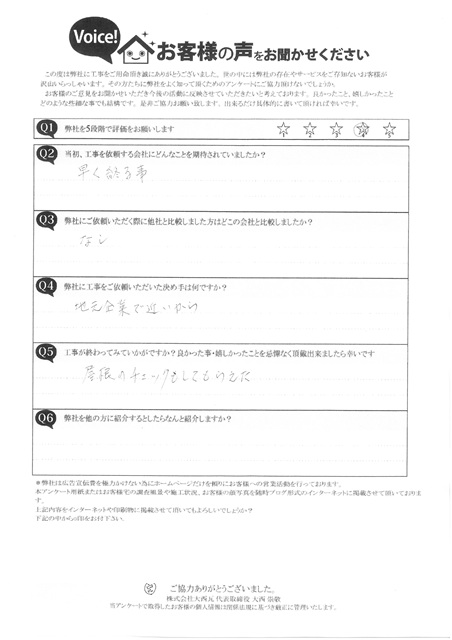 Voice!
お客様の声をお聞かせください
この度は弊社に工事をご用命頂き誠にありがとうございました。世の中には弊社の存在やサービスをご存知ないお客様が
沢山いらっしゃいます。その方たちに弊社をよく知って頂くためのアンケートにご協力頂けないでしょうか。
お客様のご意見をお聞かせいただき今後の活動に反映させていただきたいと考えております。良かったこと、嬉しかったこと
どのような些細な事でも結構です。是非ご協力お願い致します。出来るだけ具体的に書いて頂ければ幸いです。
Q1 弊社を5段階で評価をお願いします ☆ ☆ ☆ ☆ ☆
Q2 当初、工事を依頼する会社にどんなことを期待されていましたか？
早く終る事
Q3 弊社にご依頼いただく際に他社と比較しました方はどこの会社と比較しましたか？
なし
Q4 弊社に工事をご依頼いただいた決め手は何ですか？
地元企業で近いから
Q5 工事が終わってみていかがですか？良かった事・嬉しかったことを忌憚なく頂戴出来ましたら幸いです
屋根のチェックもしてもらえた
Q6 弊社を他の方に紹介するとしたらなんと紹介しますか？
＊弊社は広告宣伝費を極力かけない為にホームページだけを頼りにお客様への営業活動を行っております。
本アンケート用紙またはお客様宅の調査風景や施工状況、お客様の顔写真を随時ブログ形式のインターネットに掲載させて頂いておりま
す。
上記内容をインターネットや印刷物に掲載させて頂いてもよろしいでしょうか？
下記の中から○印をお付け下さい。
ご協力ありがとうございました。
株式会社大西瓦 代表取締役 大西 崇敬
当アンケートで取得したお客様の個人情報は関係法規に基づき厳正に管理いたします。